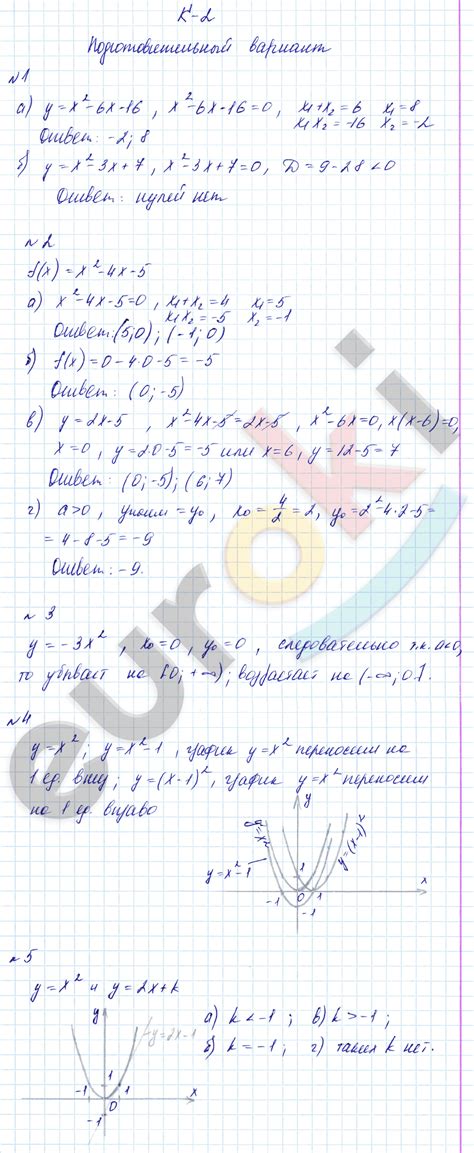 К-2
Подготовительный вариант
№1
а) y=x²-6x-16, x²-6x-16=0, x₁+x₂=6 x₁=8
x₁x₂=-16 x₂=-2
Ответ: -2; 8
б) y=x²-3x+7, x²-3x+7=0, D=9-28<0
Ответ: нулей нет
№2
f(x)=x²-4x-5
а) x²-4x-5=0, x₁+x₂=4 x₁=5
x₁x₂=-5 x₂=-1
Ответ: (5;0); (-1;0)
б) f(x)=0-4·0-5=-5
Ответ: (0;-5)
в) y=2x-5, x²-4x-5=2x-5, x²-6x=0, x(x-6)=0,
x=0, y=2·0-5=-5 или x=6, y=12-5=7
Ответ: (0;-5); (6;7)
г) a>0, yнаим=y₀, x₀=4/2=2, y₀=2²-4·2-5=
=4-8-5=-9
Ответ: -9.
№3
y=-3x², x₀=0, y₀=0, следовательно т.к. a<0,
то убывает на [0;+∞); возрастает на (-∞;0].
№4
y=x²; y=x²-1, график y=x² переносим на
1 ед. вниз; y=(x-1)², график y=x² переносим
на 1 ед. вправо
y
y=x²
y=(x-1)²
y=x²-1
1
x
-1 0 1
-1
№5
y=x² и y=2x+k
а) k<-1; в) k>-1;
б) k=-1; г) таких k нет.
y
y=2x-1
1
-1 0 1 x
-1
euroki